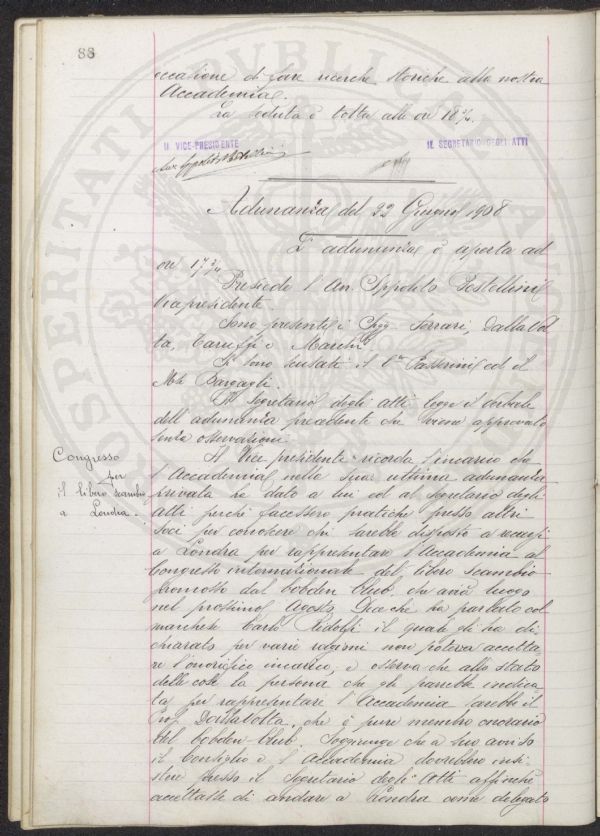 88
occasione di fare ricerche storiche alla nostra
Accademia.
La seduta è tolta alle ore 18 3/4.
IL VICE-PRESIDENTE
IL SEGRETARIO DEGLI ATTI
Adunanza del 22 Giugno 1908
L'adunanza è aperta ad
ore 17 3/4
Presiede l'Avv. Ippolito Pestellini
Vicepresidente
Sono presenti i Sigg. Ferrari, Dalla Vol
ta, Caruffi e Marchi
Si sono scusati il Passerini ed il
Bargagli.
Il Segretario degli atti legge il verbale
dell'adunanza precedente che viene approvato
senza osservazioni.
Congresso
per
il libero scambio
a Londra.
Il Vice presidente ricorda l'incarico che
l'Accademia nella sua ultima adunanza
privata ha dato a lui ed al segretario degli
atti perchè facessero pratiche presso altri
soci per conoscere chi sarebbe disposto a recarsi
a Londra per rappresentare l'Accademia al
Congresso internazionale del libero scambio
promosso dal Cobden Club, che avrà luogo
nel prossimo Agosto. Dice che ha parlato col
marchese Carlo Ridolfi il quale gli ha di-
chiarato per varie ragioni non poteva accetta
re l'onorifico incarico, e osserva che allo stato
delle cose la persona che gli parrebbe indica-
ta per rappresentare l'Accademia sarebbe il
Prof. Dalla Volta, che è pure membro onorario
del Cobden-Club. Soggiunge che a suo avviso
il Consiglio e l'Accademia dovrebbero insi-
stere presso il Segretario degli Atti affinchè
accettasse di andare a Londra come delegato